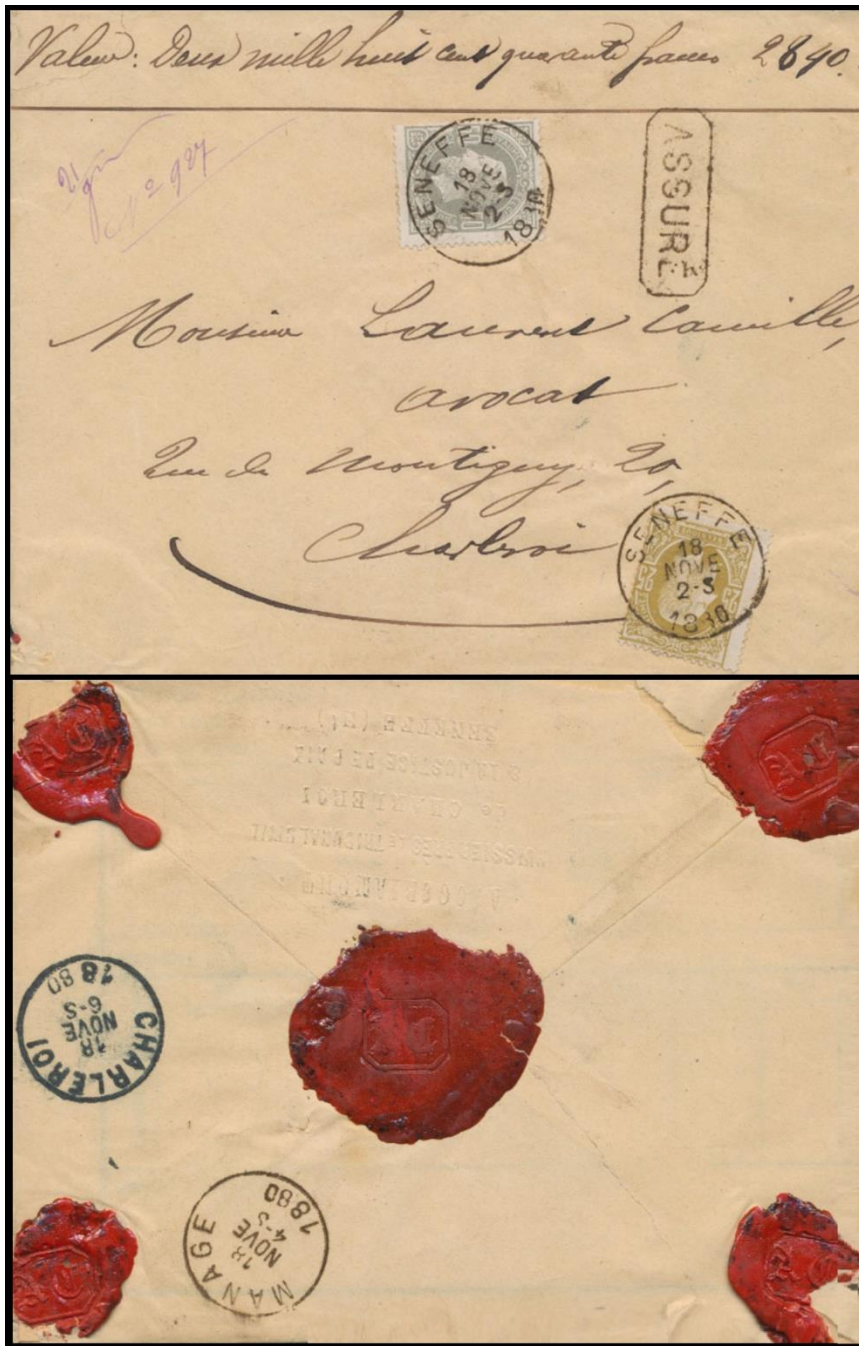 Valeur: Deux mille huit cent quarante francs 2840.
21 gm
Nº 927
SENEFFE
18
NOVE
2-S
1880
ASSURÉ
Monsieur Laurent Camille,
avocat
Rue de Montigny, 20,
Charleroi
SENEFFE
18
NOVE
2-S
1880
SENEFFE (Ht)
& LA JUSTICE DE PAIX
DE CHARLEROI
HUISSIER PRÈS LE TRIBUNAL
CHARLEROI
18
NOVE
6-S
1880
MANAGE
18
NOVE
4-S
1880